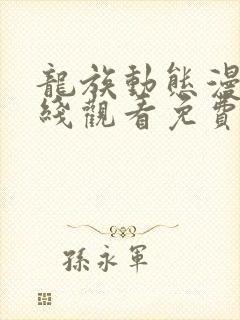 龍族動態漫
綫觀看免費
孫永軍